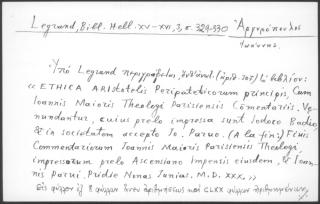 Legrand, Bibl. Hell. XV-XVI, 3, σ. 329-330
Ἀργυρόπουλος
Ἰωάννης.
Ὑπό Legrand περιγράφεται, (ἀριθ. 305) τό βιβλίον:
« ETHICA ARistotelis Peripateticorum principis, Cum
Ioannis Maioris Theologi Parisiensis Comentariis. Ve-
nundantur, cuius prelo impressa sunt Iodoco Badio,
& in societatem accepto Io. Paruo. (A la fin:) Finis
Commendariorum Ioannis Maioris Parisiensis Theologi
impressorum prelo Ascensiano Impensis eiusdem, & Ioan-
nis Parui, Pridie Nonas Iunias. M.D. XXX. »
Εἰς φύλλον ἐξ 8 φύλλων ἄνευ ἀριθμήσεως καί CLXX φύλλων ἀριθμημένων,